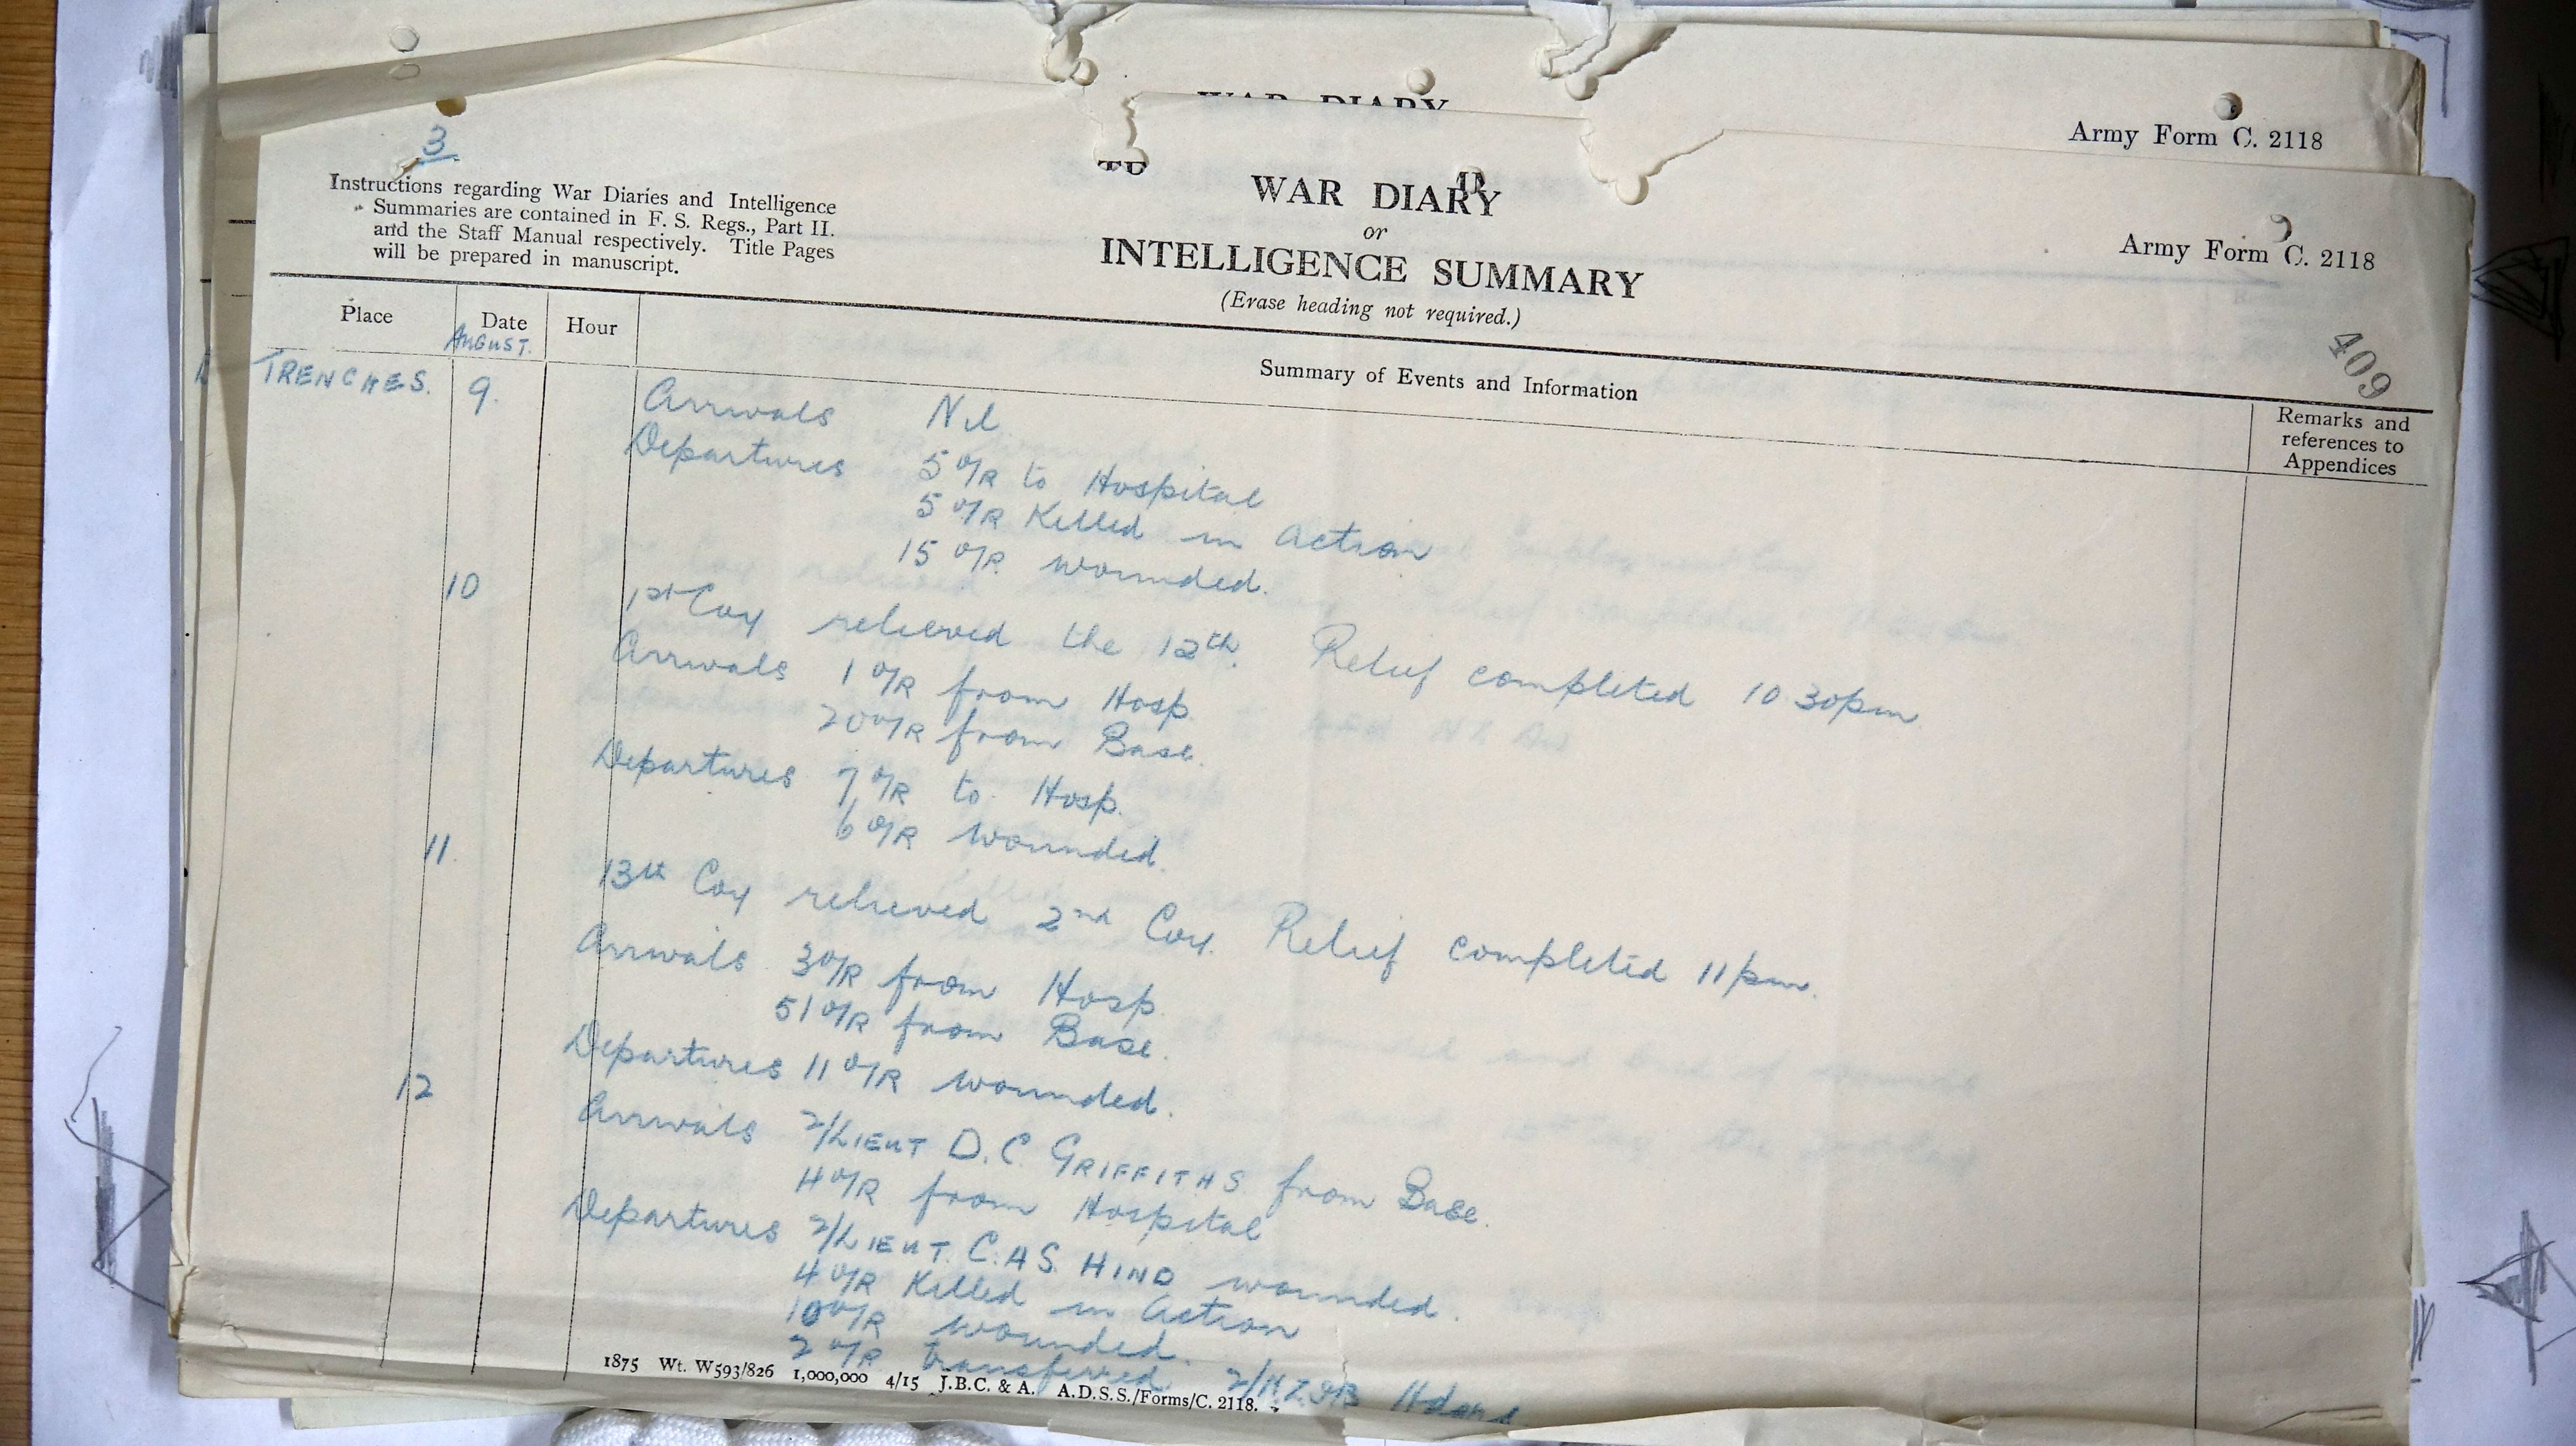 WAR DIARY
Army Form C. 2118
3
Instructions regarding War Diaries and Intelligence
Summaries are contained in F. S. Regs., Part II.
and the Staff Manual respectively. Title Pages
will be prepared in manuscript.
WAR DIARY
or
INTELLIGENCE SUMMARY
(Erase heading not required.)
Army Form C. 2118
409
Place Date Hour Summary of Events and Information Remarks and references to Appendices
AUGUST.
TRENCHES. 9. Arrivals Nil
Departures 5 O/R to Hospital
5 O/R Killed in Action
15 O/R wounded.
10 1st Coy relieved the 12th. Relief completed 10 30pm
Arrivals 1 O/R from Hosp
20 O/R from Base.
Departures 7 O/R to Hosp.
6 O/R wounded.
11. 13th Coy relieved 2nd Coy. Relief completed 11pm.
Arrivals 3 O/R from Hosp
51 O/R from Base.
Departures 11 O/R wounded.
12 Arrivals 2/LIEUT D.C. GRIFFITHS from Base.
4 O/R from Hospital
Departures 2/LIEUT. C.A.S. HIND wounded.
4 O/R Killed in Action
10 O/R wounded.
2 O/R transferred 2/N.Z.I.B Hdqrs
1875 Wt. W593/826 1,000,000 4/15 J.B.C. & A. A.D.S.S./Forms/C. 2118.